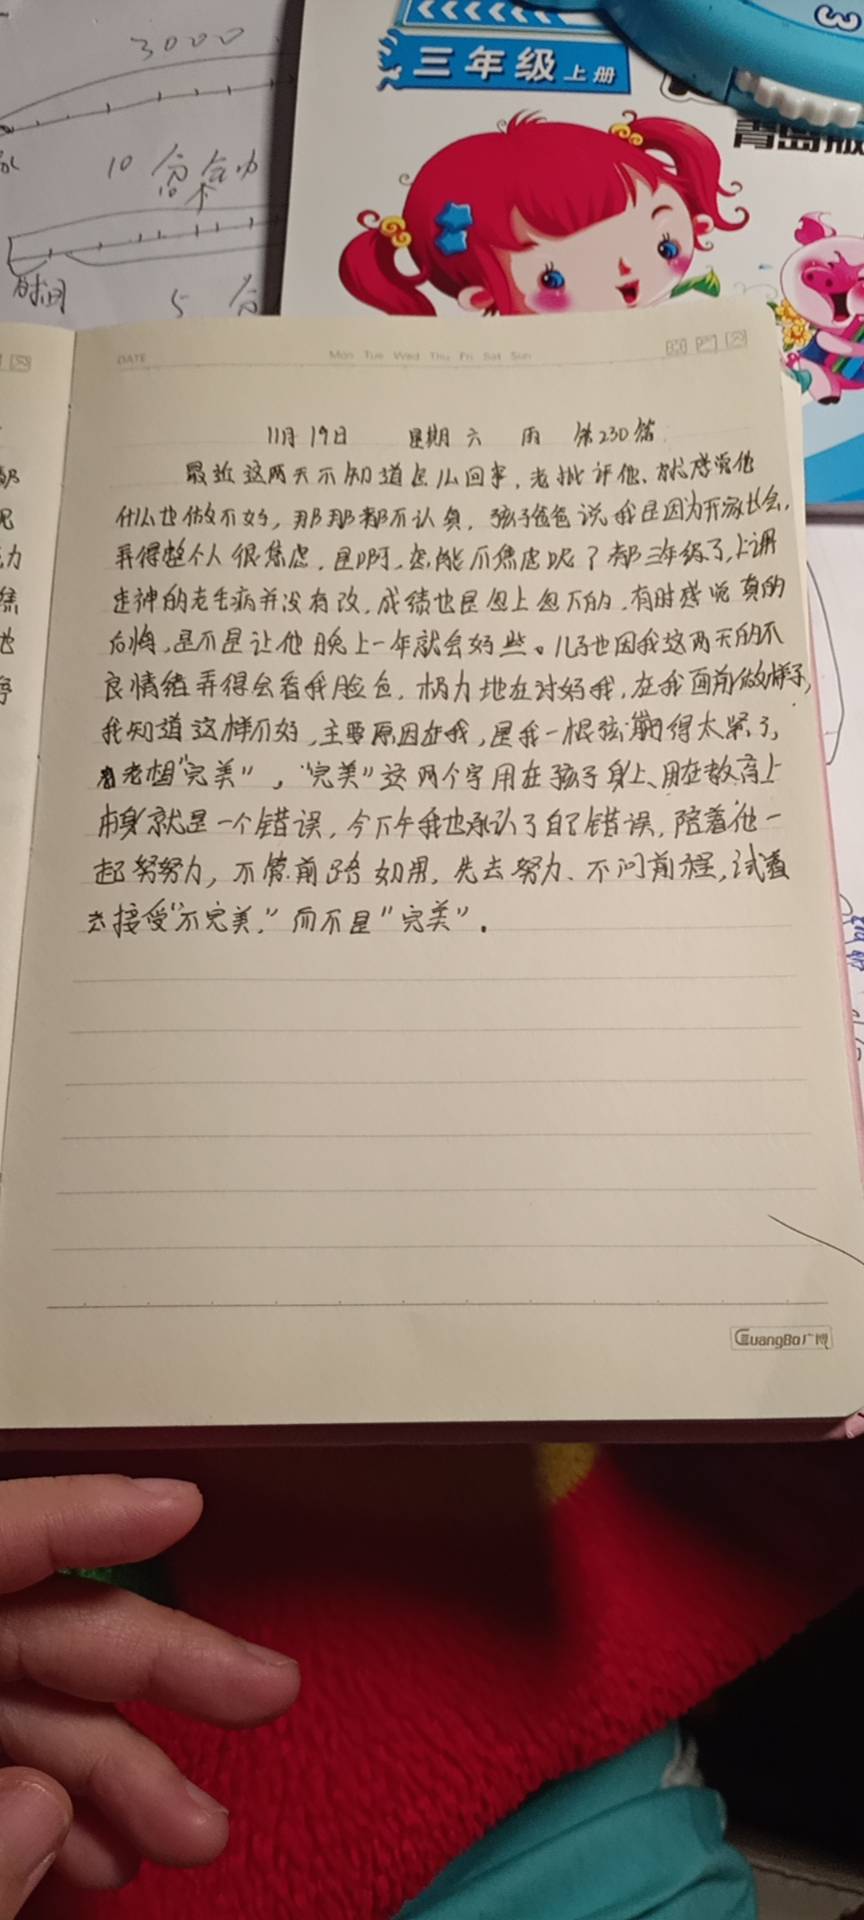 3000
三年级上册
青岛版
10分钟
时间
5分
DATE
Mon Tue Wed Thu Fri Sat Sun
11月19日 星期六 雨 第230篇
最近这两天不知道怎么回事,老批评他、就感觉他
什么也做不好,那那都不认真,孩子爸爸说我是因为开家长会,
弄得整个人很焦虑,是啊,怎能不焦虑呢?都三年级了,上课
走神的老毛病并没有改,成绩也是忽上忽下的,有时感觉真的
后悔,是不是让他晚上一年就会好些。儿子也因我这两天的不
良情绪弄得会看我脸色,极力地在讨好我,在我面前做样子,
我知道这样不好,主要原因在我,是我一根弦绷得太紧了,
老想"完美","完美"这两个字用在孩子身上、用在教育上
本身就是一个错误,今下午我也承认了自己错误,陪着他一
起努努力,不管前路如何,先去努力、不问前程,试着
去接受"不完美,"而不是"完美"。
GuangBo广博